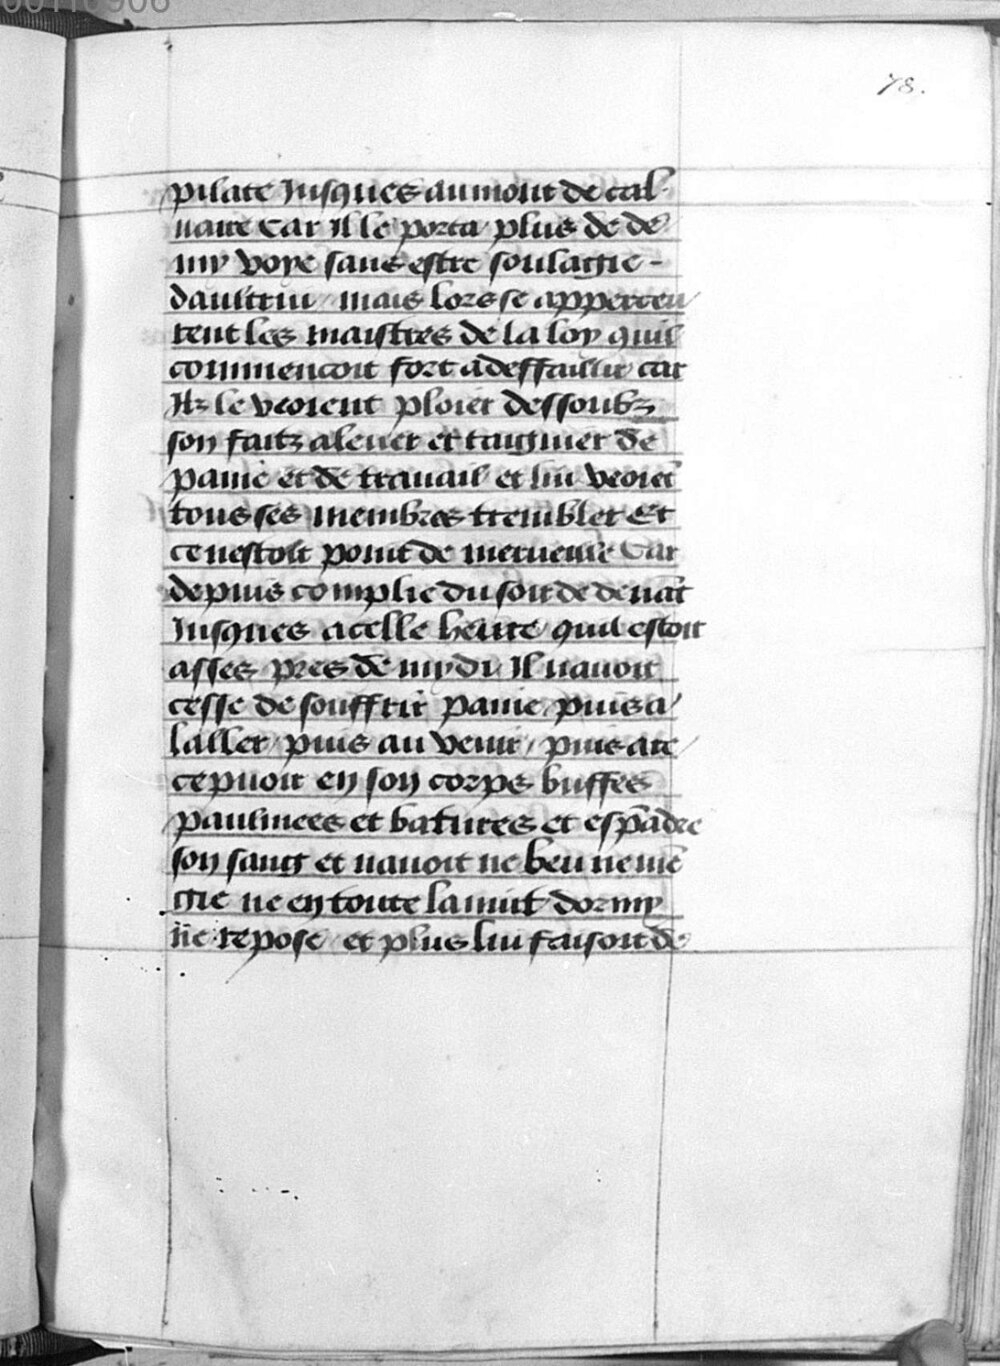 00110908
78.
pilate Jusques au mont de cal
uaire Car Il le porta plus de de
my voye sans estre soulagie -
daultrui / mais lors se apperceu
rent les maistres de la loy quil
commencoit fort a deffaillir car
Ilz le veoient ploier dessoubz
son faitz alener et taigner de
paine et de trauail et lui veoiet
tous ses membres trembler Et
ce nestoit point de merueille Car
depuis complie du soir de deuat
Jusques a celle heure quil estoit
asses pres de mydi Il nauoit
cesse de souffrir paine puis a
laller / puis au venir / puis a re
cepuoir en son corps buffes
paulmees et batures et espadre
son sang et nauoit ne beu ne me
gie ne en toute la nuit dormy
ne repose et plus lui faisoit de